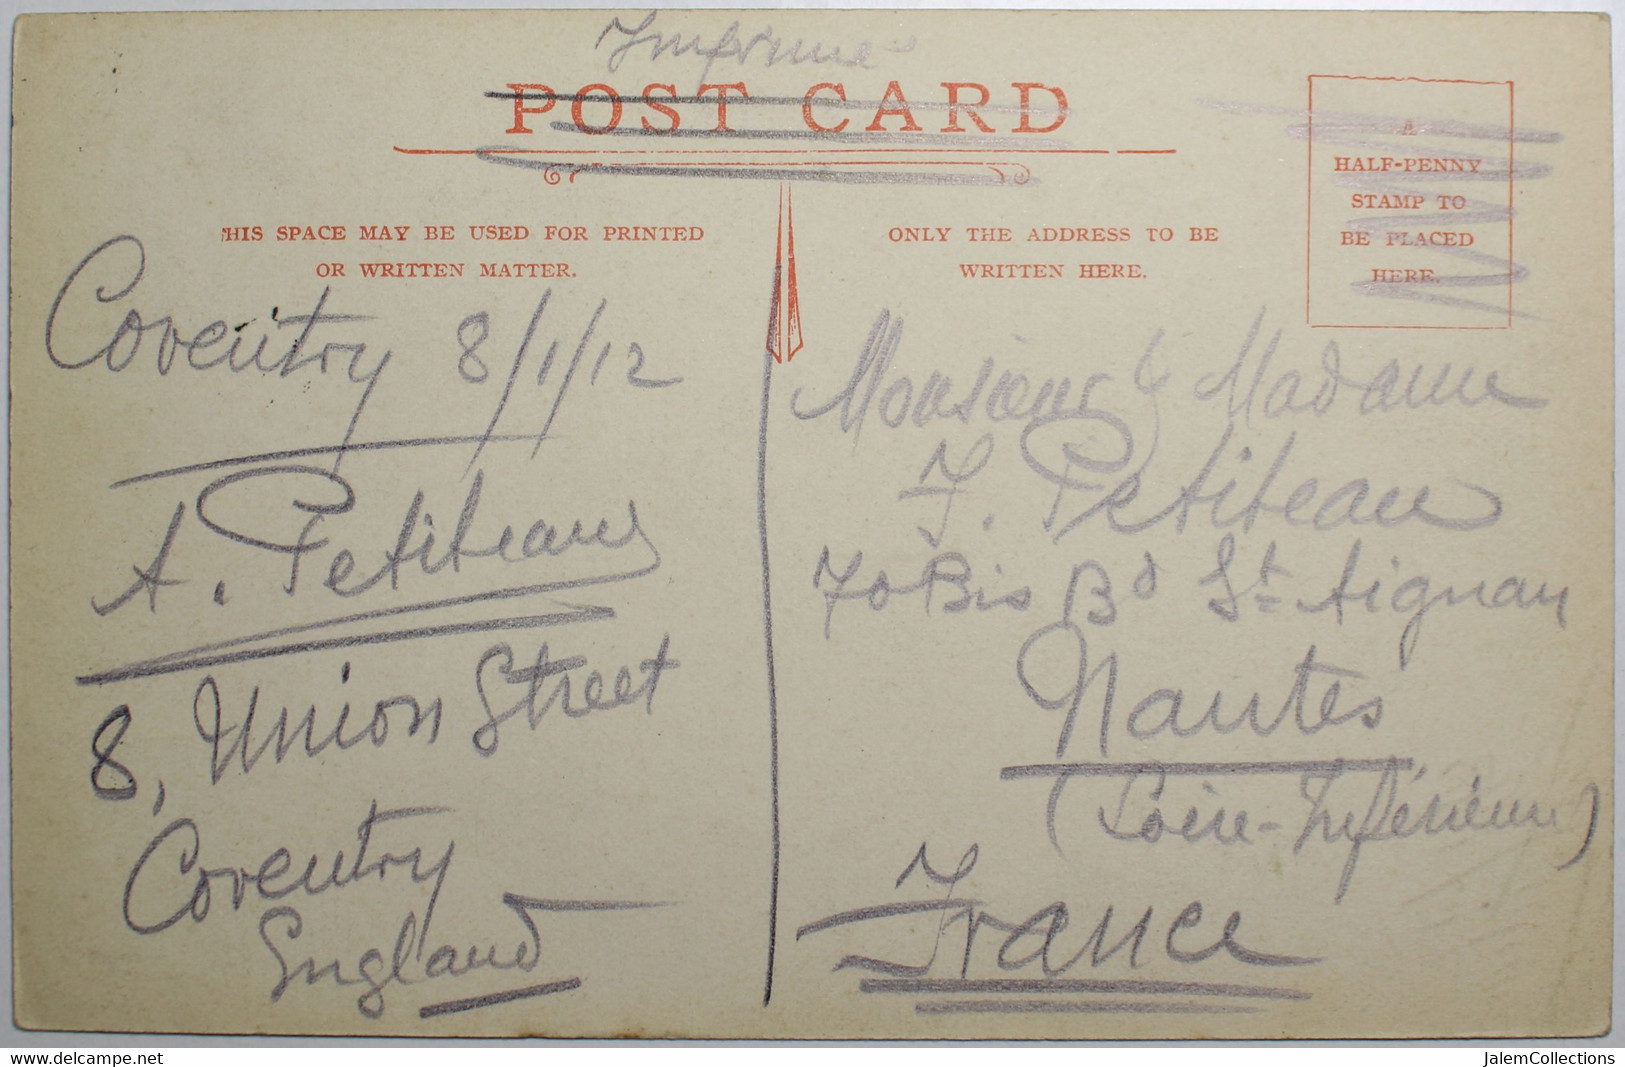 Imprimé
POST CARD
THIS SPACE MAY BE USED FOR PRINTED
OR WRITTEN MATTER.
ONLY THE ADDRESS TO BE
WRITTEN HERE.
A
HALF-PENNY
STAMP TO
BE PLACED
HERE.
Coventry 8/1/12
A. Petiteau
8, Union Street
Coventry
England
Monsieur & Madame
F. Petiteau
70 Bis Bd St Aignan
Nantes
(Loire-Inférieure)
France
www.delcampe.net
JalemCollections